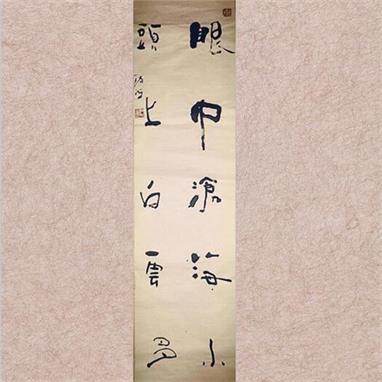 眼中滄海小
頭上白雲多